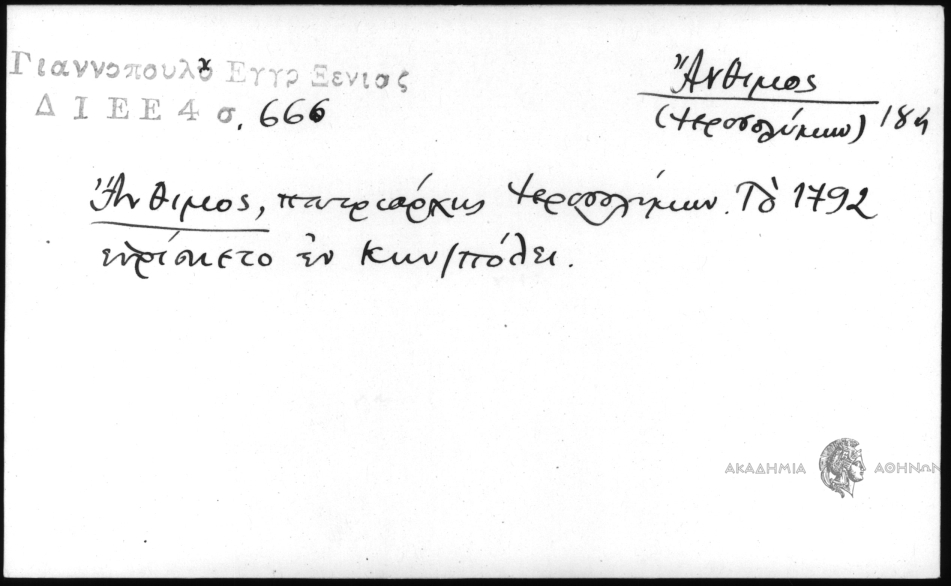 Γιαννοπουλου Εγγρ Ξενιας
Δ Ι Ε Ε 4 σ. 666
Ἄνθιμος
(Ἱεροσολύμων) 18η
Ἄνθιμος, πατριάρχης Ἱεροσολύμων. Τὸ 1792
εὑρίσκετο ἐν Κων/πόλει.
ΑΚΑΔΗΜΙΑ ΑΘΗΝΩΝ